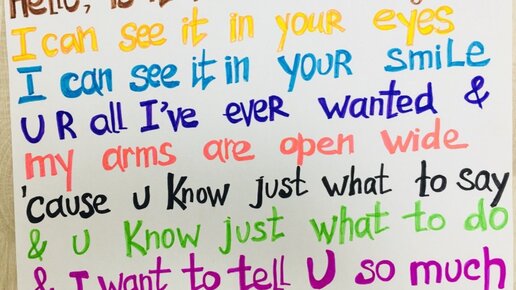 Hello, is it
I can see it in your eyes
I can see it in your smile
U R all I've ever wanted &
my arms are open wide
'cause u know just what to say
& u know just what to do
& I want to tell U so much